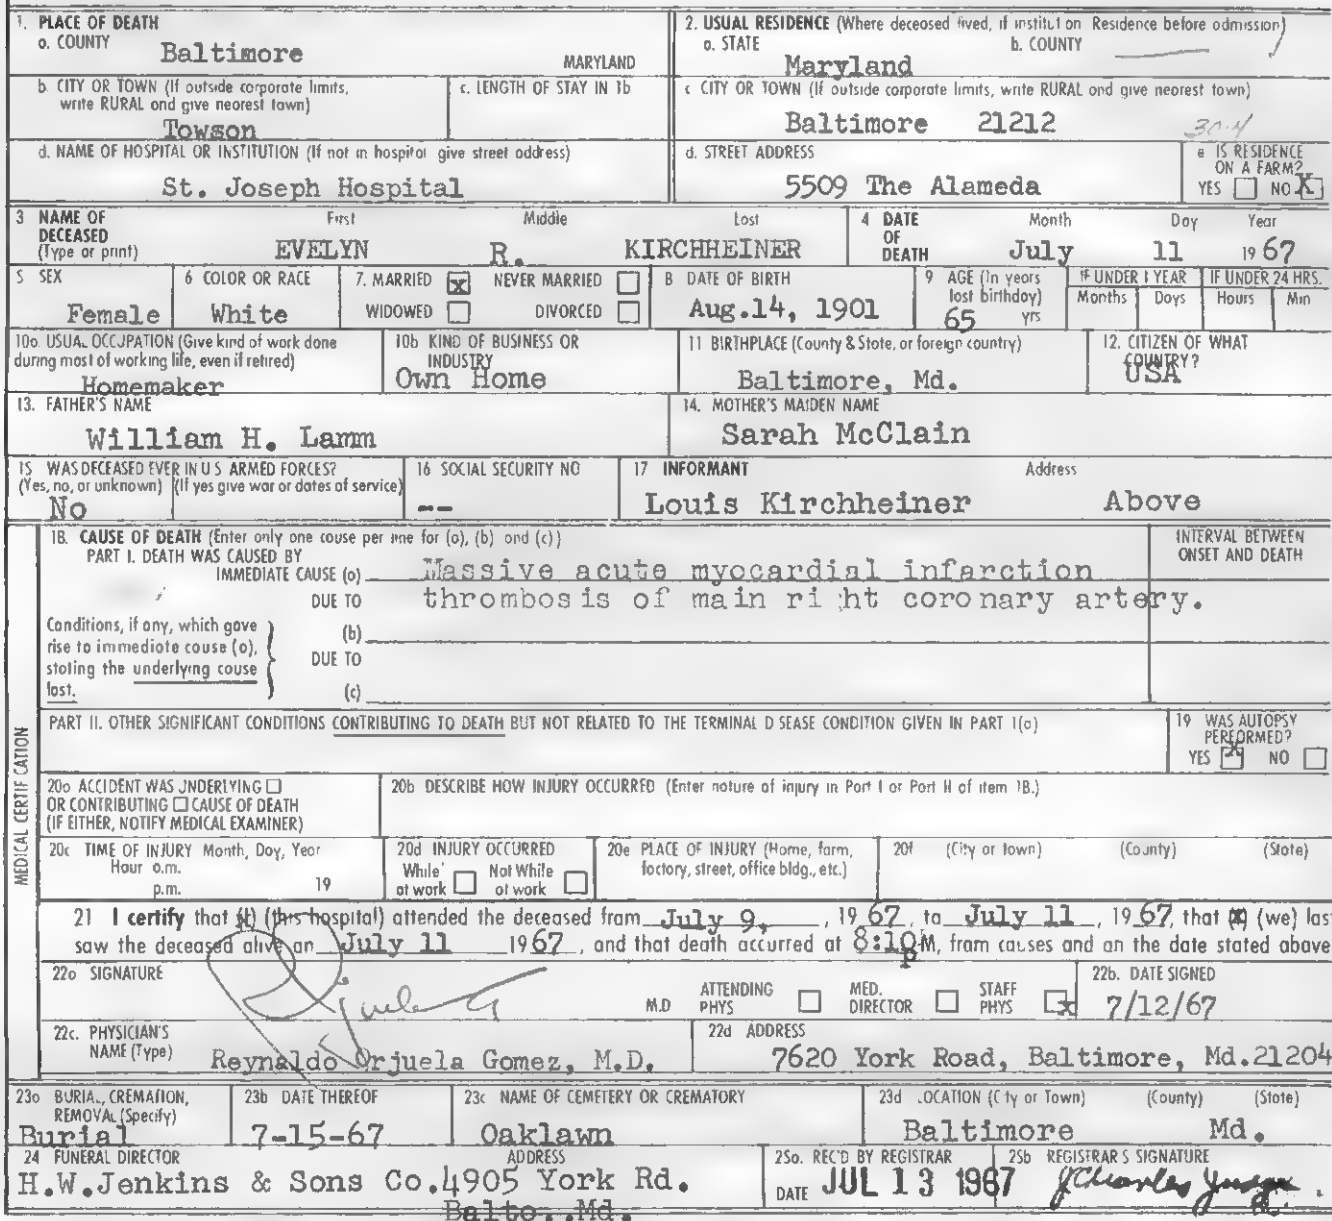 1. PLACE OF DEATH
a. COUNTY
Baltimore
MARYLAND
2. USUAL RESIDENCE (Where deceased lived, if institution Residence before admission)
a. STATE
b. COUNTY
Maryland
b. CITY OR TOWN (If outside corporate limits, write RURAL and give nearest town)
Towson
c. LENGTH OF STAY IN 1b
c CITY OR TOWN (If outside corporate limits, write RURAL and give nearest town)
Baltimore 21212
30-4
d. NAME OF HOSPITAL OR INSTITUTION (If not in hospital give street address)
St. Joseph Hospital
d. STREET ADDRESS
5509 The Alameda
e IS RESIDENCE ON A FARM?
YES NO X
3 NAME OF DECEASED (Type or print)
First Middle Last
EVELYN R. KIRCHHEINER
4 DATE OF DEATH
Month Day Year
July 11 1967
5 SEX
Female
6 COLOR OR RACE
White
7. MARRIED x NEVER MARRIED
WIDOWED DIVORCED
8 DATE OF BIRTH
Aug.14, 1901
9 AGE (In years last birthday)
65 yrs
IF UNDER 1 YEAR
Months Days
IF UNDER 24 HRS.
Hours Min
10a. USUAL OCCUPATION (Give kind of work done during most of working life, even if retired)
Homemaker
10b KIND OF BUSINESS OR INDUSTRY
Own Home
11 BIRTHPLACE (County & State, or foreign country)
Baltimore, Md.
12. CITIZEN OF WHAT COUNTRY?
USA
13. FATHER'S NAME
William H. Lamm
14. MOTHER'S MAIDEN NAME
Sarah McClain
15 WAS DECEASED EVER IN U S ARMED FORCES?
(Yes, no, or unknown) (If yes give war or dates of service)
No
16 SOCIAL SECURITY NO
--
17 INFORMANT Address
Louis Kirchheiner Above
MEDICAL CERTIFICATION
18. CAUSE OF DEATH (Enter only one cause per line for (a), (b) and (c))
PART I. DEATH WAS CAUSED BY
IMMEDIATE CAUSE (a) Massive acute myocardial infarction
DUE TO thrombosis of main right coronary artery.
INTERVAL BETWEEN ONSET AND DEATH
Conditions, if any, which gave rise to immediate cause (a), stating the underlying cause last.
(b)
DUE TO
(c)
PART II. OTHER SIGNIFICANT CONDITIONS CONTRIBUTING TO DEATH BUT NOT RELATED TO THE TERMINAL DISEASE CONDITION GIVEN IN PART I(a)
19 WAS AUTOPSY PERFORMED?
YES x NO
20a ACCIDENT WAS UNDERLYING
OR CONTRIBUTING CAUSE OF DEATH
(IF EITHER, NOTIFY MEDICAL EXAMINER)
20b DESCRIBE HOW INJURY OCCURRED (Enter nature of injury in Part I or Part II of item 18.)
20c TIME OF INJURY Month, Day, Year
Hour a.m.
p.m. 19
20d INJURY OCCURRED
While at work Not While at work
20e PLACE OF INJURY (Home, farm, factory, street, office bldg., etc.)
20f (City or town) (County) (State)
21 I certify that (I) (this hospital) attended the deceased from July 9, 1967, to July 11, 1967, that (I) (we) last
saw the deceased alive on July 11 1967, and that death occurred at 8:10 pM, from causes and on the date stated above
22a SIGNATURE
M.D
ATTENDING PHYS
MED. DIRECTOR
STAFF PHYS x
22b. DATE SIGNED
7/12/67
22c. PHYSICIAN'S NAME (Type)
Reynaldo Orjuela Gomez, M.D.
22d ADDRESS
7620 York Road, Baltimore, Md.21204
23a BURIAL, CREMATION, REMOVAL (Specify)
Burial
23b DATE THEREOF
7-15-67
23c NAME OF CEMETERY OR CREMATORY
Oaklawn
23d LOCATION (City or Town) (County) (State)
Baltimore Md.
24 FUNERAL DIRECTOR ADDRESS
H.W.Jenkins & Sons Co.4905 York Rd.
Balto.,Md.
25a. REC'D BY REGISTRAR
DATE JUL 13 1967
25b REGISTRAR'S SIGNATURE
J Charles Judge